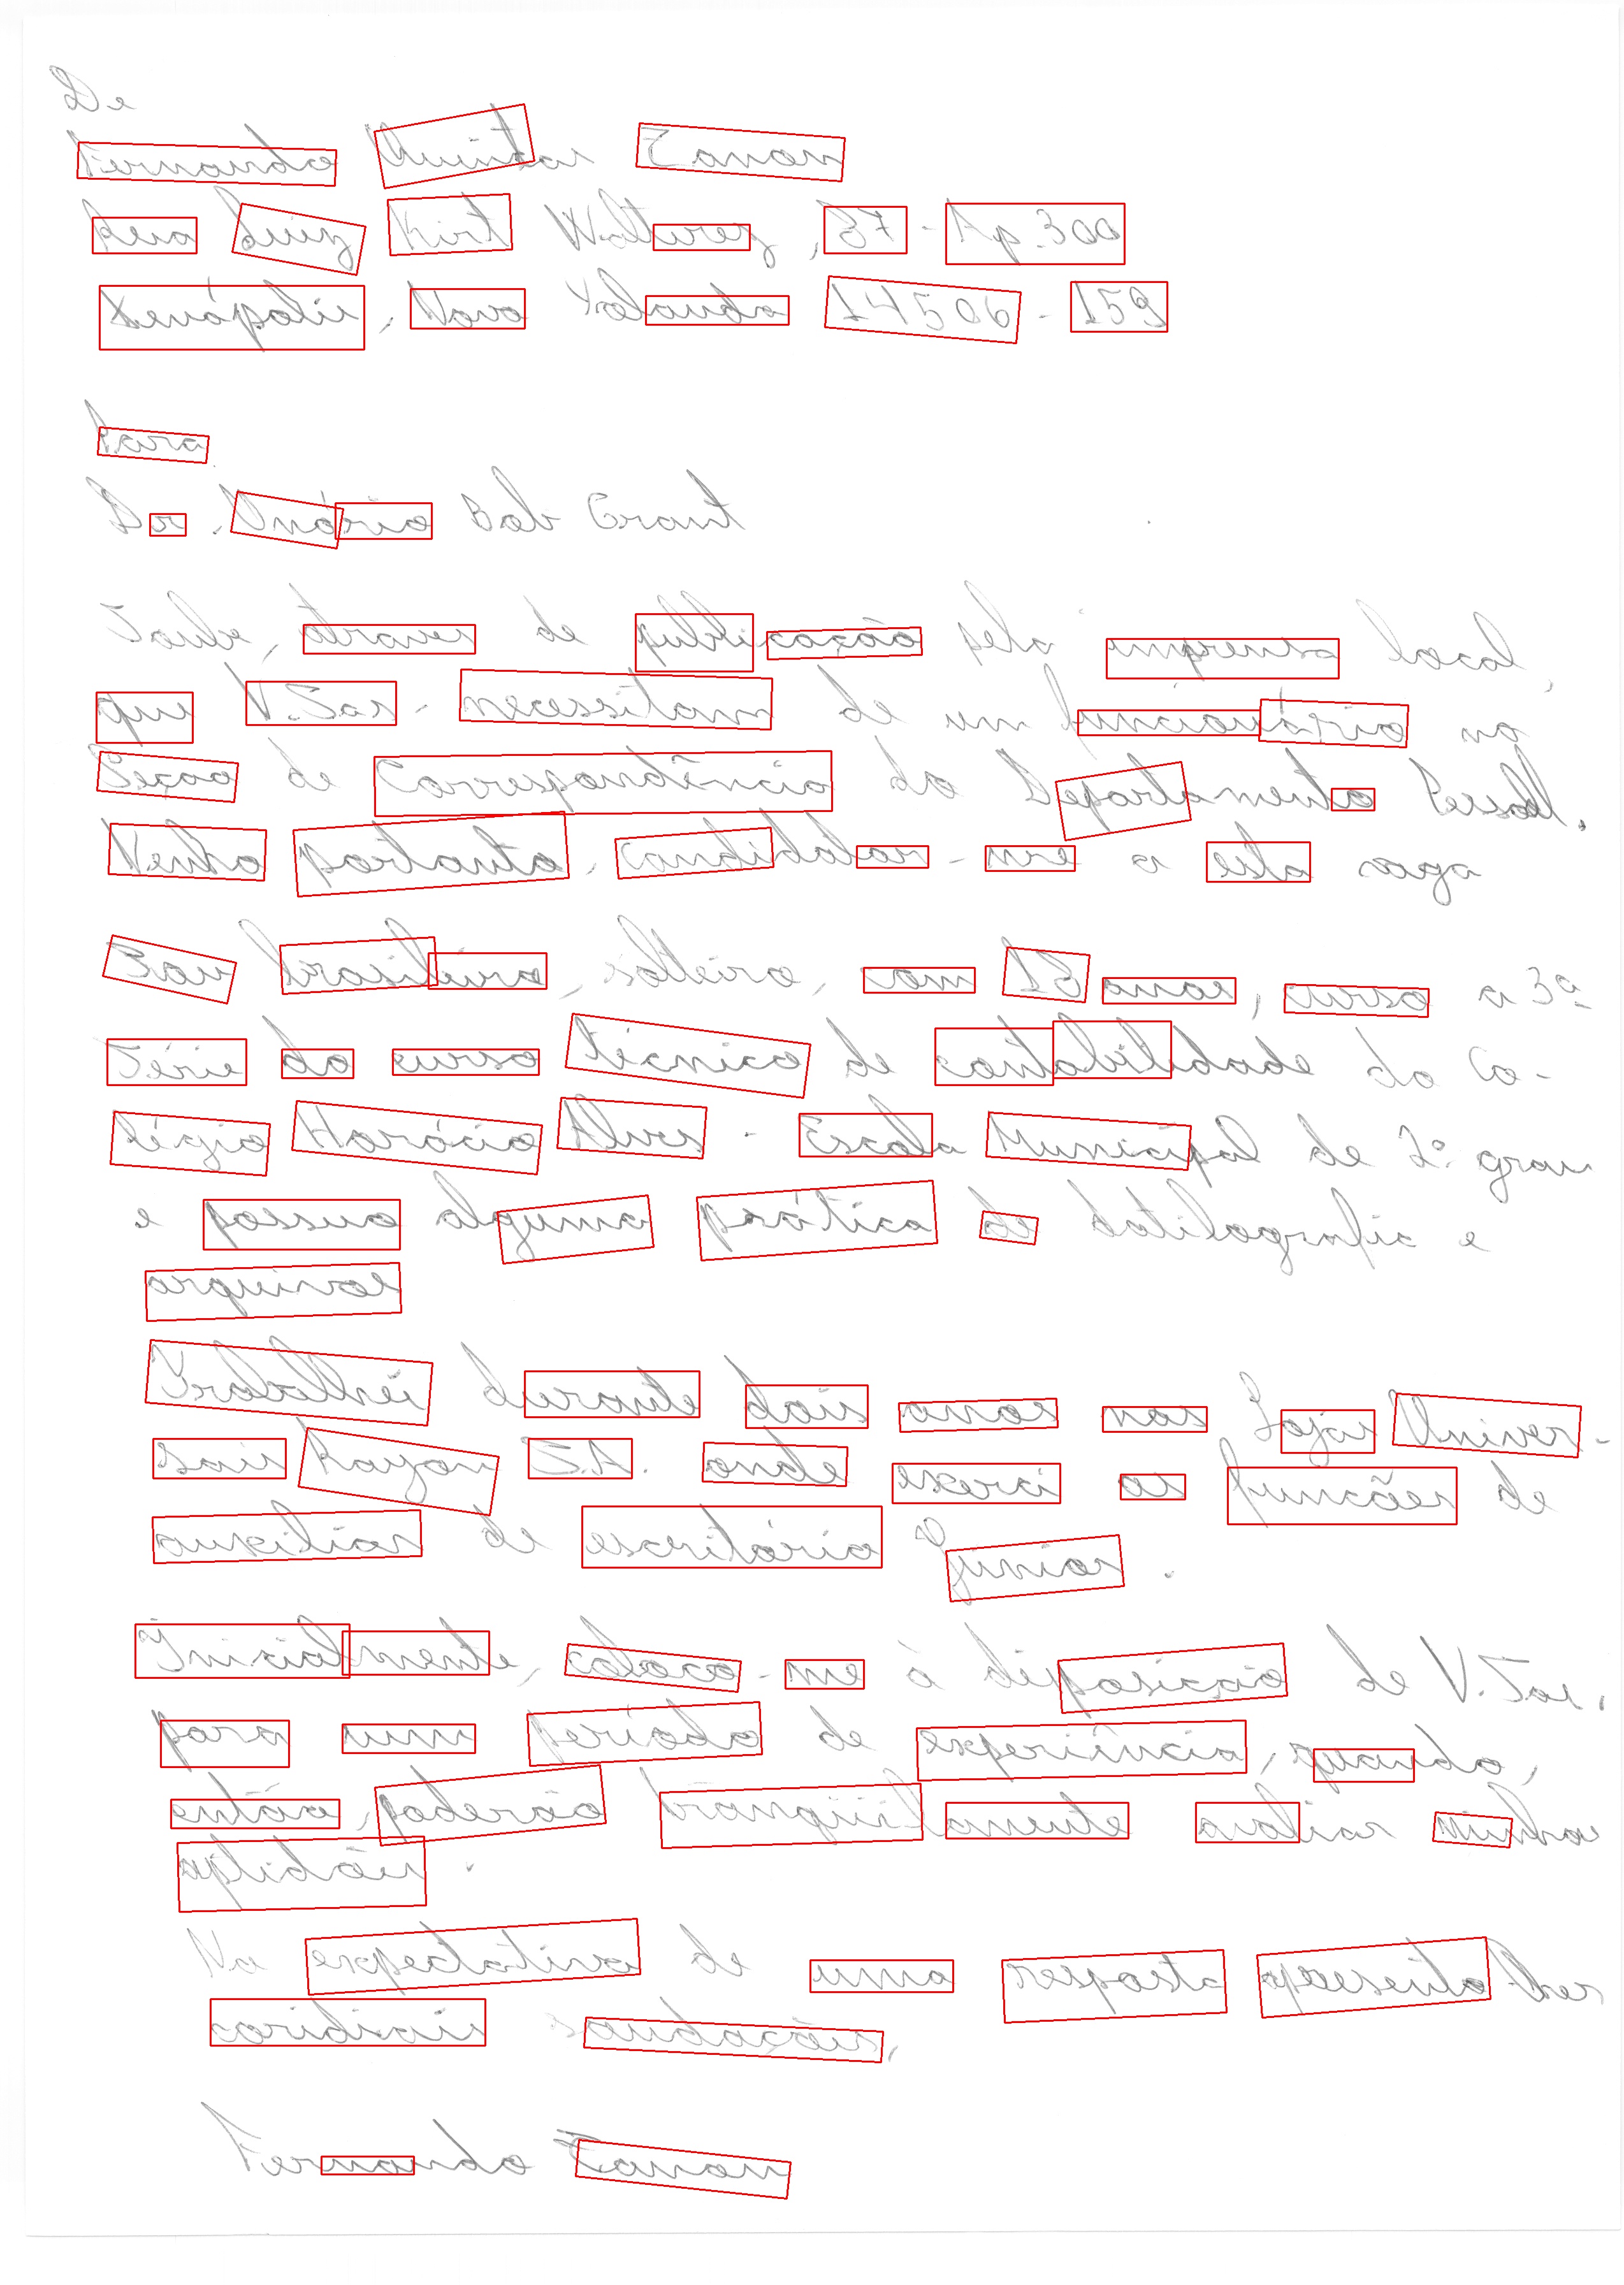 De
Fernando Quintas Zanon
Rua Luiz Kirt 37 - Ap. 300
Xenópolis, Nova Yolanda 14506 - 159
Para
Dr. Onório Bob Grant
Soube, atraves de publicação pela imprensa local,
que V.Sas. necessitam de um funcionário na
Seção de Correspondência do Departamento Pessoal.
Venho portanto, candidatar-me a esta vaga
Sou brasileiro, solteiro, com 18 anos, curso a 3ª
Série do curso técnico de contabilidade do Co-
légio Horócio Alves - Escola Municipal de 2º grau
e possuo alguma prática de datilografia e
arquivos
Trabalhei durante dois anos nas Lojas Univer-
sais Rayon S.A. onde exerci as funcões de
auxiliar de escritório Junior.
Inicialmente, coloco-me à disposição de V.Sas.
para um período de experiência, quando,
então, poderão tranquilamente avaliar minhas
aptidões.
Na expectativa de uma resposta apresento-lhes
cordiais saudações,
Fernando Zanon